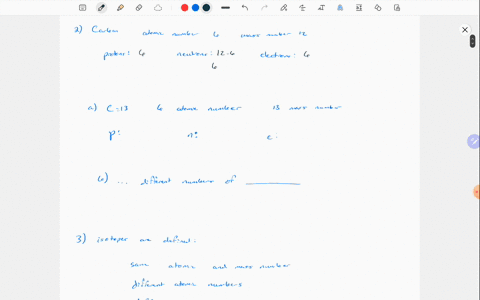 2) Carbon atomic number 6 mass number 12
protons: 6 neutrons: 12-6 electrons: 6
6
a) C-13 6 atomic number 13 mass number
p: n: e:
b) ... different numbers of
3) isotopes are defined:
same atomic and mass number
different atomic numbers